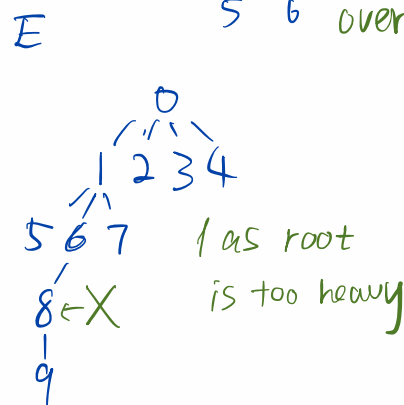 5 6 over
E
0
1 2 3 4
5 6 7 1 as root
8 ← X is too heavy
9